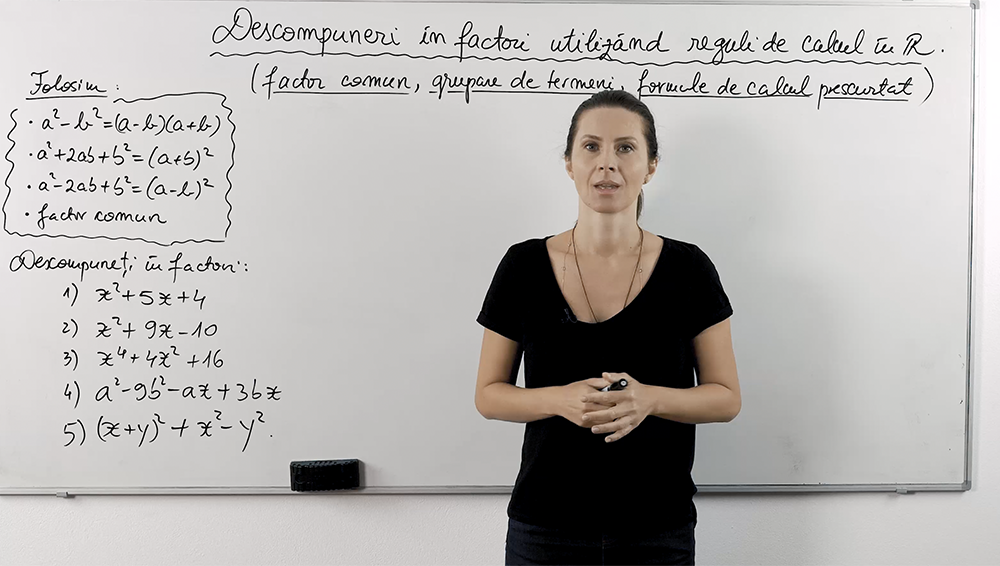 Descompuneri în factori utilizând reguli de calcul în ℝ.
(factor comun, grupare de termeni, formule de calcul prescurtat)
Folosim:
• a²-b²=(a-b)(a+b)
• a²+2ab+b²=(a+b)²
• a²-2ab+b²=(a-b)²
• factor comun
Descompuneți în factori:
1) x²+5x+4
2) x²+9x-10
3) x⁴+4x²+16
4) a²-9b²-ax+3bx
5) (x+y)²+x²-y².